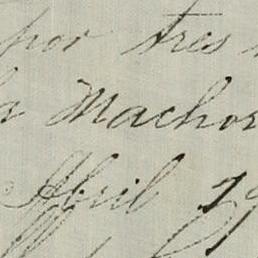 por tres
la Machor
Abril 29